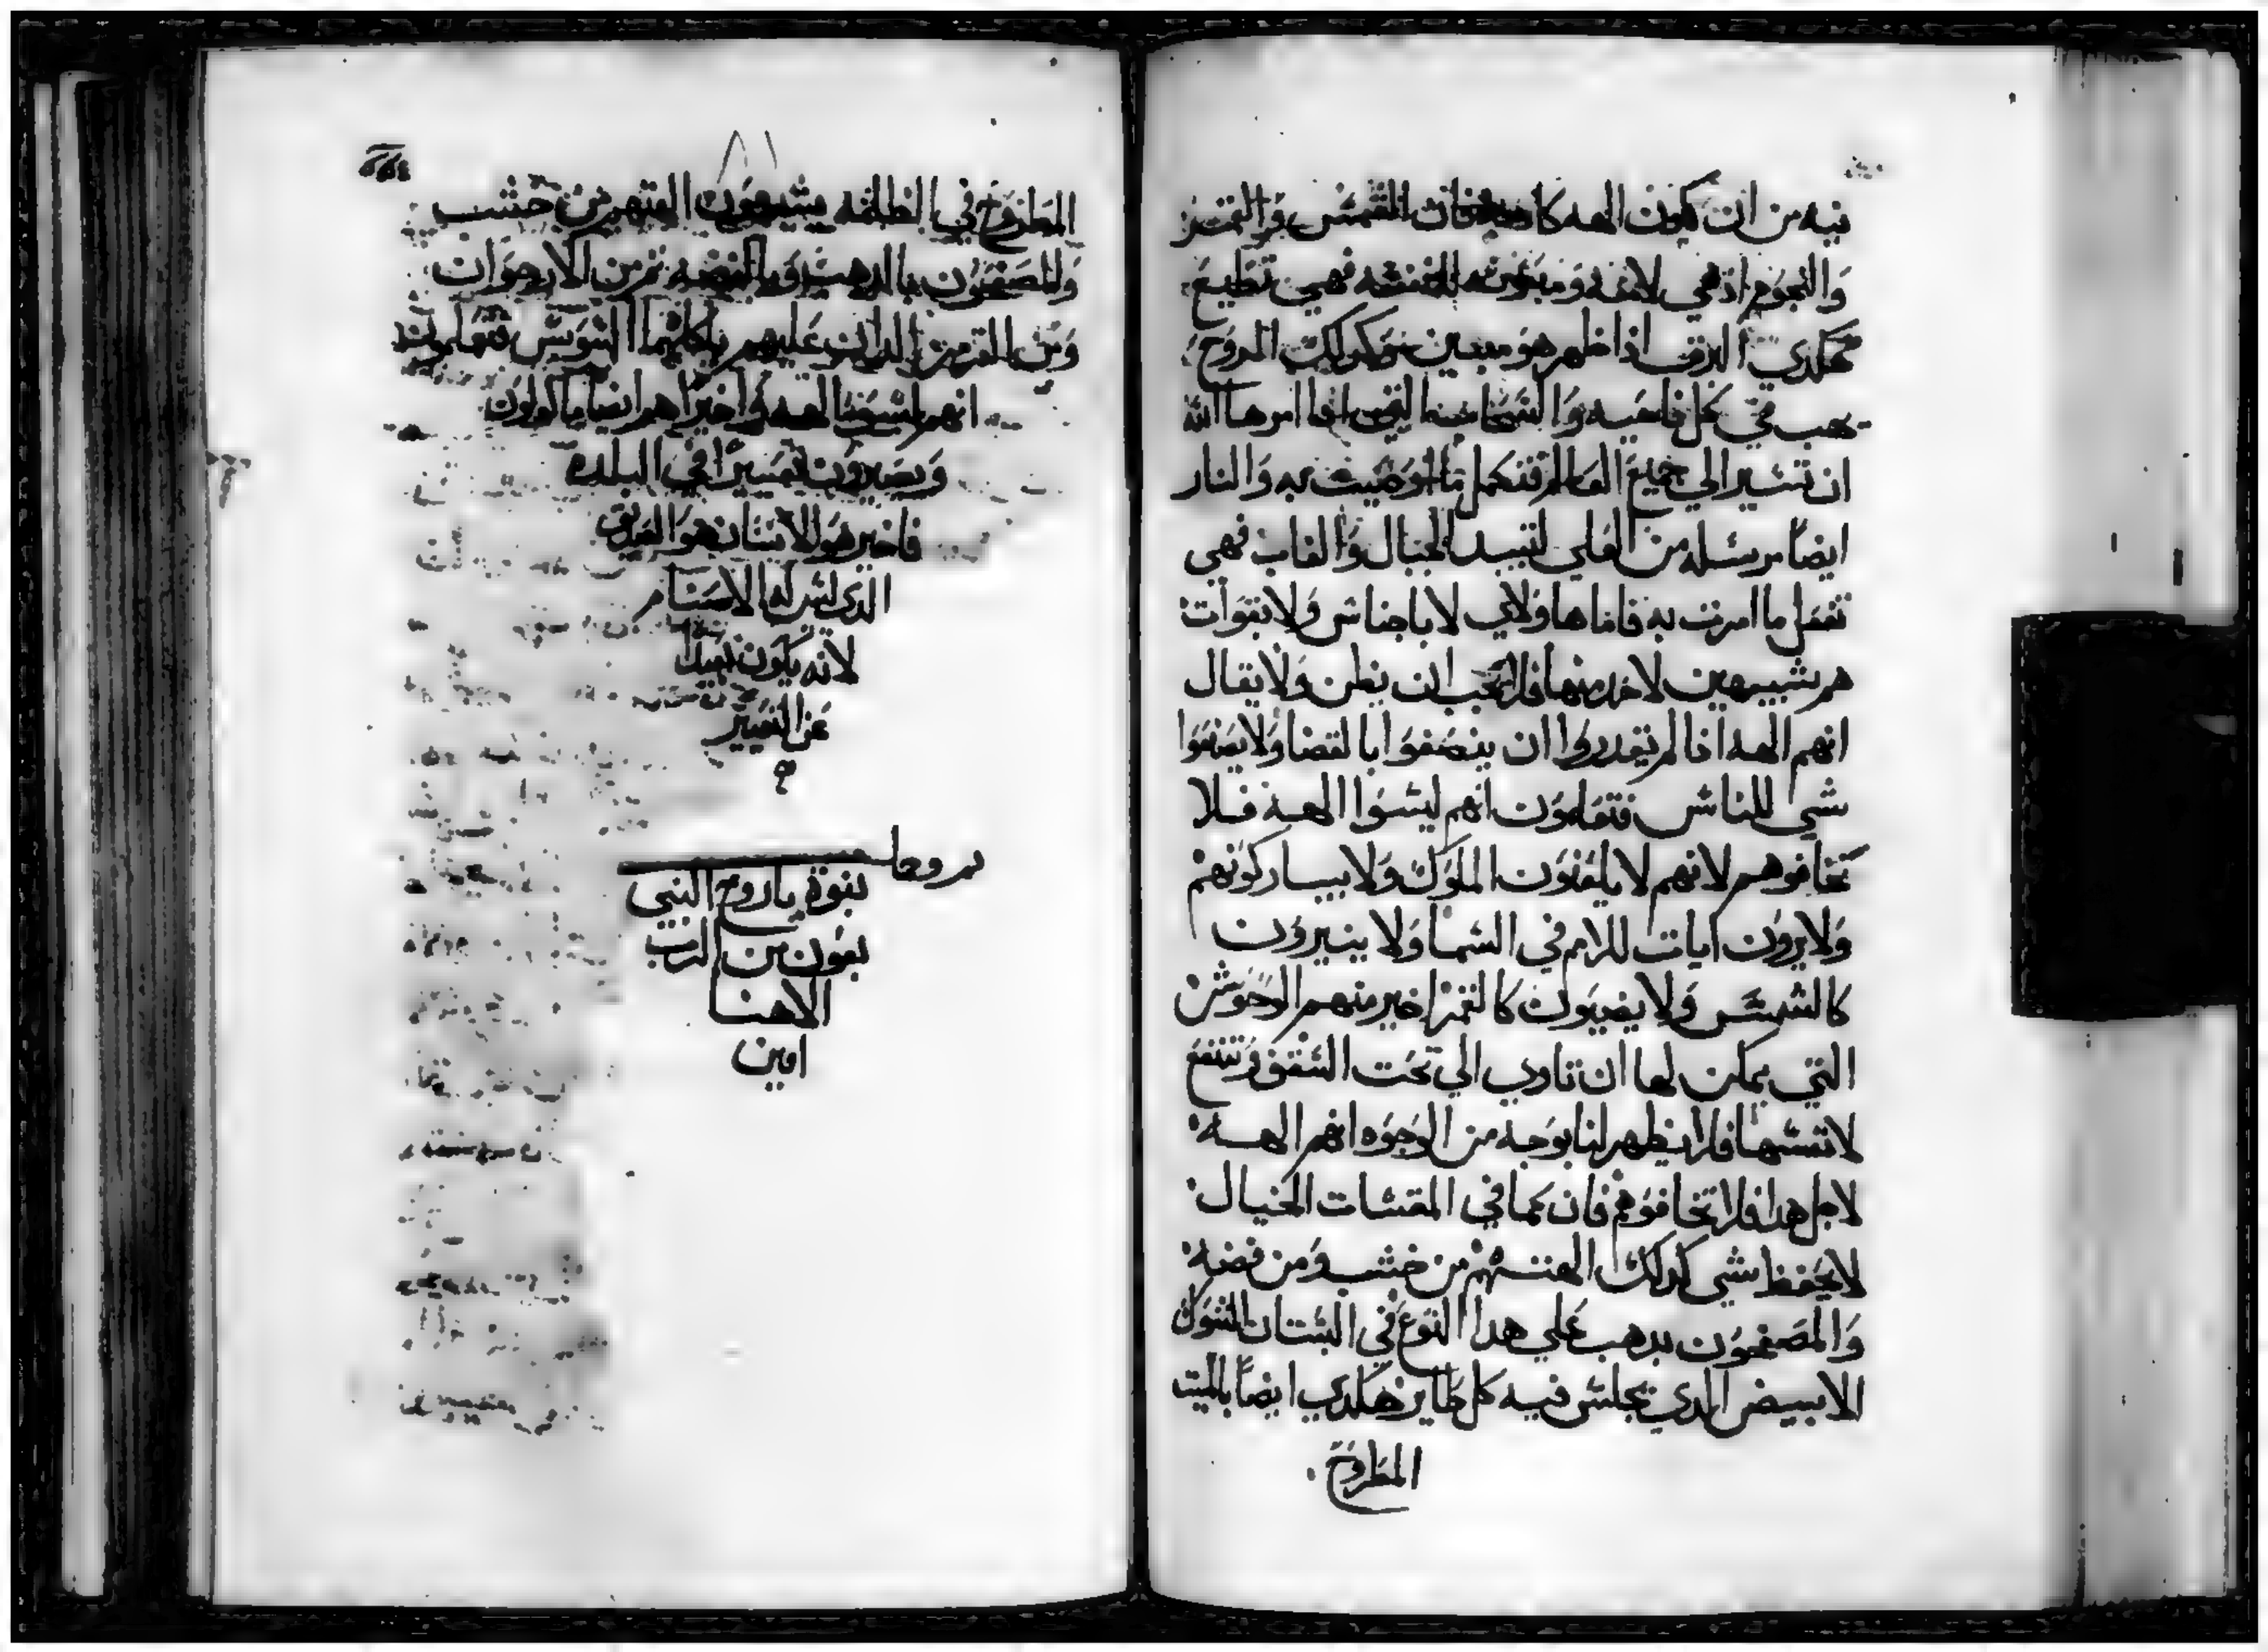 فيه من ان يكون الهه كادبه فان الشمس والقمر
والنجوم اذ هي لامعه ومبعوثه للمنفعه فهي تطيع
هكدي البرق اذا ظهر هو مبين وكدلك الروح
يهب في كل ناحيه والسحاب التي اذا امرها الله
ان تسير الي جميع العالم فتكمل ما اوصيت به والنار
ايضا مرسله من العلي لتبيد الجبال والغاب فهي
تفعل ما امرت به فاما هاولاي لا باجناس ولا بقوات
هم شبيهين لاحد منها فلا يجب ان يظن ولا يقال
انهم الهه اذا لم يقدروا ان ينصفوا بالقضا ولا يصنعوا
شي للناس فتعلمون انهم ليسوا الهه فلا
تخافوهم لانهم لا يلعنون الملوك ولا يباركونهم
ولا يرون ايات للامم في السما ولا ينيرون
كالشمس ولا يضيون كالقمر اخير منهم الوحوش
التي يمكن لها ان تاوي الي تحت السقف وتنفع
لانفسها فلا يظهر لنا بوجه من الوجوه انهم الهه
لاجل هدا فلا تخافوهم فان كما في المقتات الخيال
لا يحفظ شي كدلك الهتهم من خشب ومن فضه
والمصفحون بدهب علي هدا النوع في البستان الشوك
الابيض الدي يجلس فيه كل طاير هكدي ايضا بالميت
المطروح
المطروح في الظلمه يشبهون الهتهم من خشب
والمصفحون بالدهب وبالفضه ثم من الارجوان
ومن القرمز الدان عليهم ياكلهما السوس فتعلمون
انهم ليسوا الهه واخيرا هم ايضا ياكلون
ويصيرون تعييرا في البلده
فاخير هو الانسان هو الصديق
الدي ليس له الاصنام
لانه يكون بعيدا
عن التعيير
نبوة باروخ النبي
بعون من الرب
الاهنا
امين